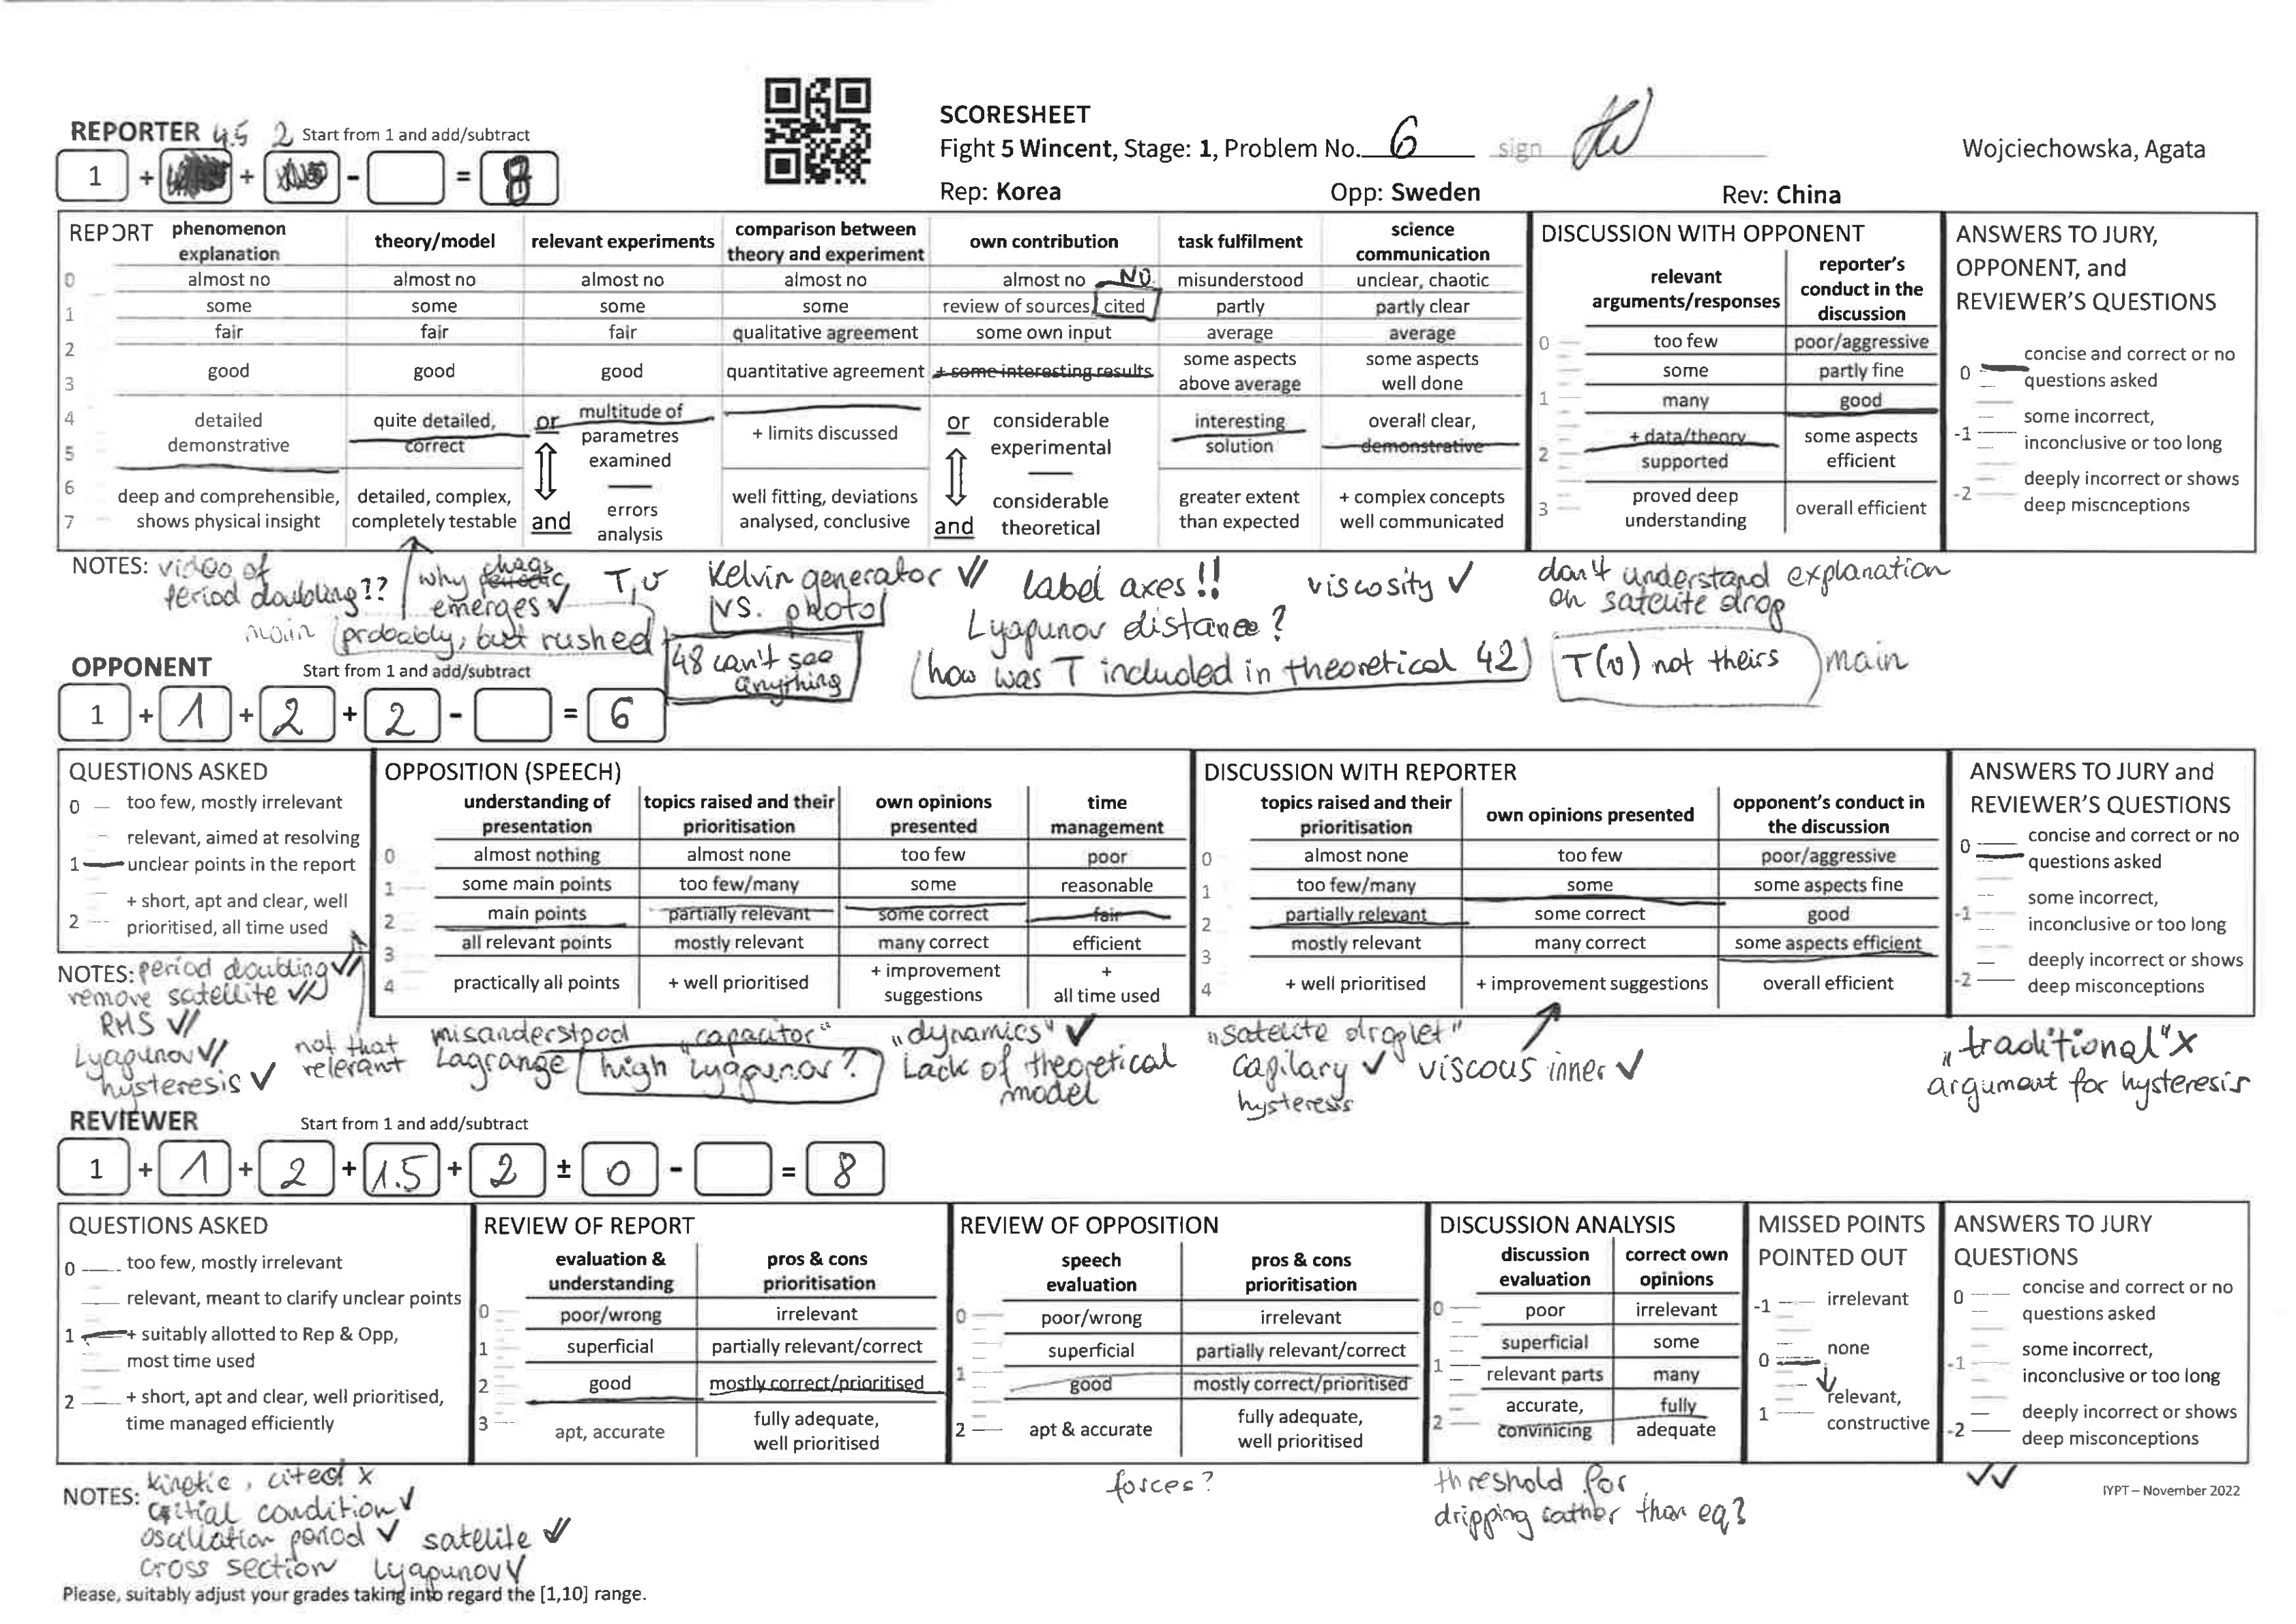 SCORESHEET
REPORTER 4.5 2 Start from 1 and add/subtract
Fight 5 Wincent, Stage: 1, Problem No. 6 sign
Wojciechowska, Agata
1 + + - = 8
Rep: Korea Opp: Sweden Rev: China
REPORT
phenomenon explanation
theory/model
relevant experiments
comparison between theory and experiment
own contribution
task fulfilment
science communication
0 almost no almost no almost no almost no almost no NO. misunderstood unclear, chaotic
1 some some some some review of sources, cited partly partly clear
fair fair fair qualitative agreement some own input average average
2
3 good good good quantitative agreement + some interesting results some aspects above average some aspects well done
4 detailed demonstrative quite detailed, correct or multitude of parametres examined + limits discussed or considerable experimental interesting solution overall clear, demonstrative
5
6 deep and comprehensible, shows physical insight detailed, complex, completely testable and errors analysis well fitting, deviations analysed, conclusive and considerable theoretical greater extent than expected + complex concepts well communicated
7
DISCUSSION WITH OPPONENT
relevant arguments/responses
reporter's conduct in the discussion
0 too few poor/aggressive
some partly fine
1 many good
+ data/theory supported some aspects efficient
2
3 proved deep understanding overall efficient
ANSWERS TO JURY,
OPPONENT, and
REVIEWER'S QUESTIONS
0 concise and correct or no questions asked
-1 some incorrect, inconclusive or too long
-2 deeply incorrect or shows deep miscnceptions
NOTES: video of
period doubling??
main
why chaos
emerges ✓
(probably, but rushed)
T, v
Kelvin generator ✓✓
vs. photo
48 can't see
anything
label axes!!
Lyapunov distance?
(how was T included in theoretical 42)
viscosity ✓
don't understand explanation
on satelite drop
T(v) not theirs ) main
OPPONENT Start from 1 and add/subtract
1 + 1 + 2 + 2 - = 6
QUESTIONS ASKED
0 too few, mostly irrelevant
relevant, aimed at resolving
1 unclear points in the report
+ short, apt and clear, well
2 prioritised, all time used
OPPOSITION (SPEECH)
understanding of presentation
topics raised and their prioritisation
own opinions presented
time management
0 almost nothing almost none too few poor
1 some main points too few/many some reasonable
2 main points partially relevant some correct fair
3 all relevant points mostly relevant many correct efficient
4 practically all points + well prioritised + improvement suggestions + all time used
DISCUSSION WITH REPORTER
topics raised and their prioritisation
own opinions presented
opponent's conduct in the discussion
0 almost none too few poor/aggressive
1 too few/many some some aspects fine
2 partially relevant some correct good
3 mostly relevant many correct some aspects efficient
4 + well prioritised + improvement suggestions overall efficient
ANSWERS TO JURY and
REVIEWER'S QUESTIONS
0 concise and correct or no questions asked
-1 some incorrect, inconclusive or too long
-2 deeply incorrect or shows deep misconceptions
NOTES: period doubling ✓✓
remove satellite ✓✓
RMS ✓✓
Lyapunov ✓✓
hysteresis ✓
not that
relevant
misanderstood
Lagrange
„capacitor"
high Lyapunov?
„dynamics" ✓
Lack of theoretical
model
„satelite droplet"
capilary ✓
hysteresis
viscous inner ✓
„traditional" x
argument for hysteresis
REVIEWER Start from 1 and add/subtract
1 + 1 + 2 + 1.5 + 2 ± 0 - = 8
QUESTIONS ASKED
0 too few, mostly irrelevant
relevant, meant to clarify unclear points
1 + suitably allotted to Rep & Opp,
most time used
2 + short, apt and clear, well prioritised,
time managed efficiently
REVIEW OF REPORT
evaluation & understanding
pros & cons prioritisation
0 poor/wrong irrelevant
1 superficial partially relevant/correct
2 good mostly correct/prioritised
3 apt, accurate fully adequate, well prioritised
REVIEW OF OPPOSITION
speech evaluation
pros & cons prioritisation
0 poor/wrong irrelevant
superficial partially relevant/correct
1 good mostly correct/prioritised
2 apt & accurate fully adequate, well prioritised
DISCUSSION ANALYSIS
discussion evaluation
correct own opinions
0 poor irrelevant
superficial some
1 relevant parts many
2 accurate, convinicing fully adequate
MISSED POINTS
POINTED OUT
-1 irrelevant
0 none
relevant,
1 constructive
ANSWERS TO JURY
QUESTIONS
0 concise and correct or no questions asked
-1 some incorrect, inconclusive or too long
-2 deeply incorrect or shows deep misconceptions
NOTES: kinetic, cited x
initial condition ✓
oscillation period ✓ satelite ✓✓
cross section Lyapunov ✓
forces?
threshold for
dripping rather than eq?
✓✓
IYPT – November 2022
Please, suitably adjust your grades taking into regard the [1,10] range.